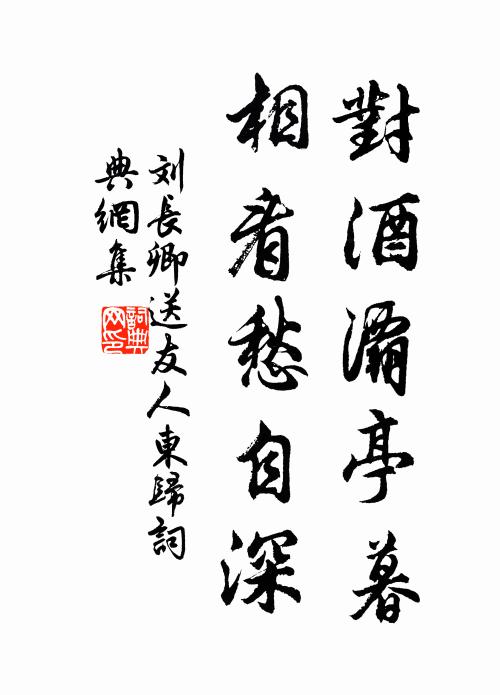 對酒灞亭暮
相看愁自深
刘長卿送友人東歸詞
典網集
詞典
网印